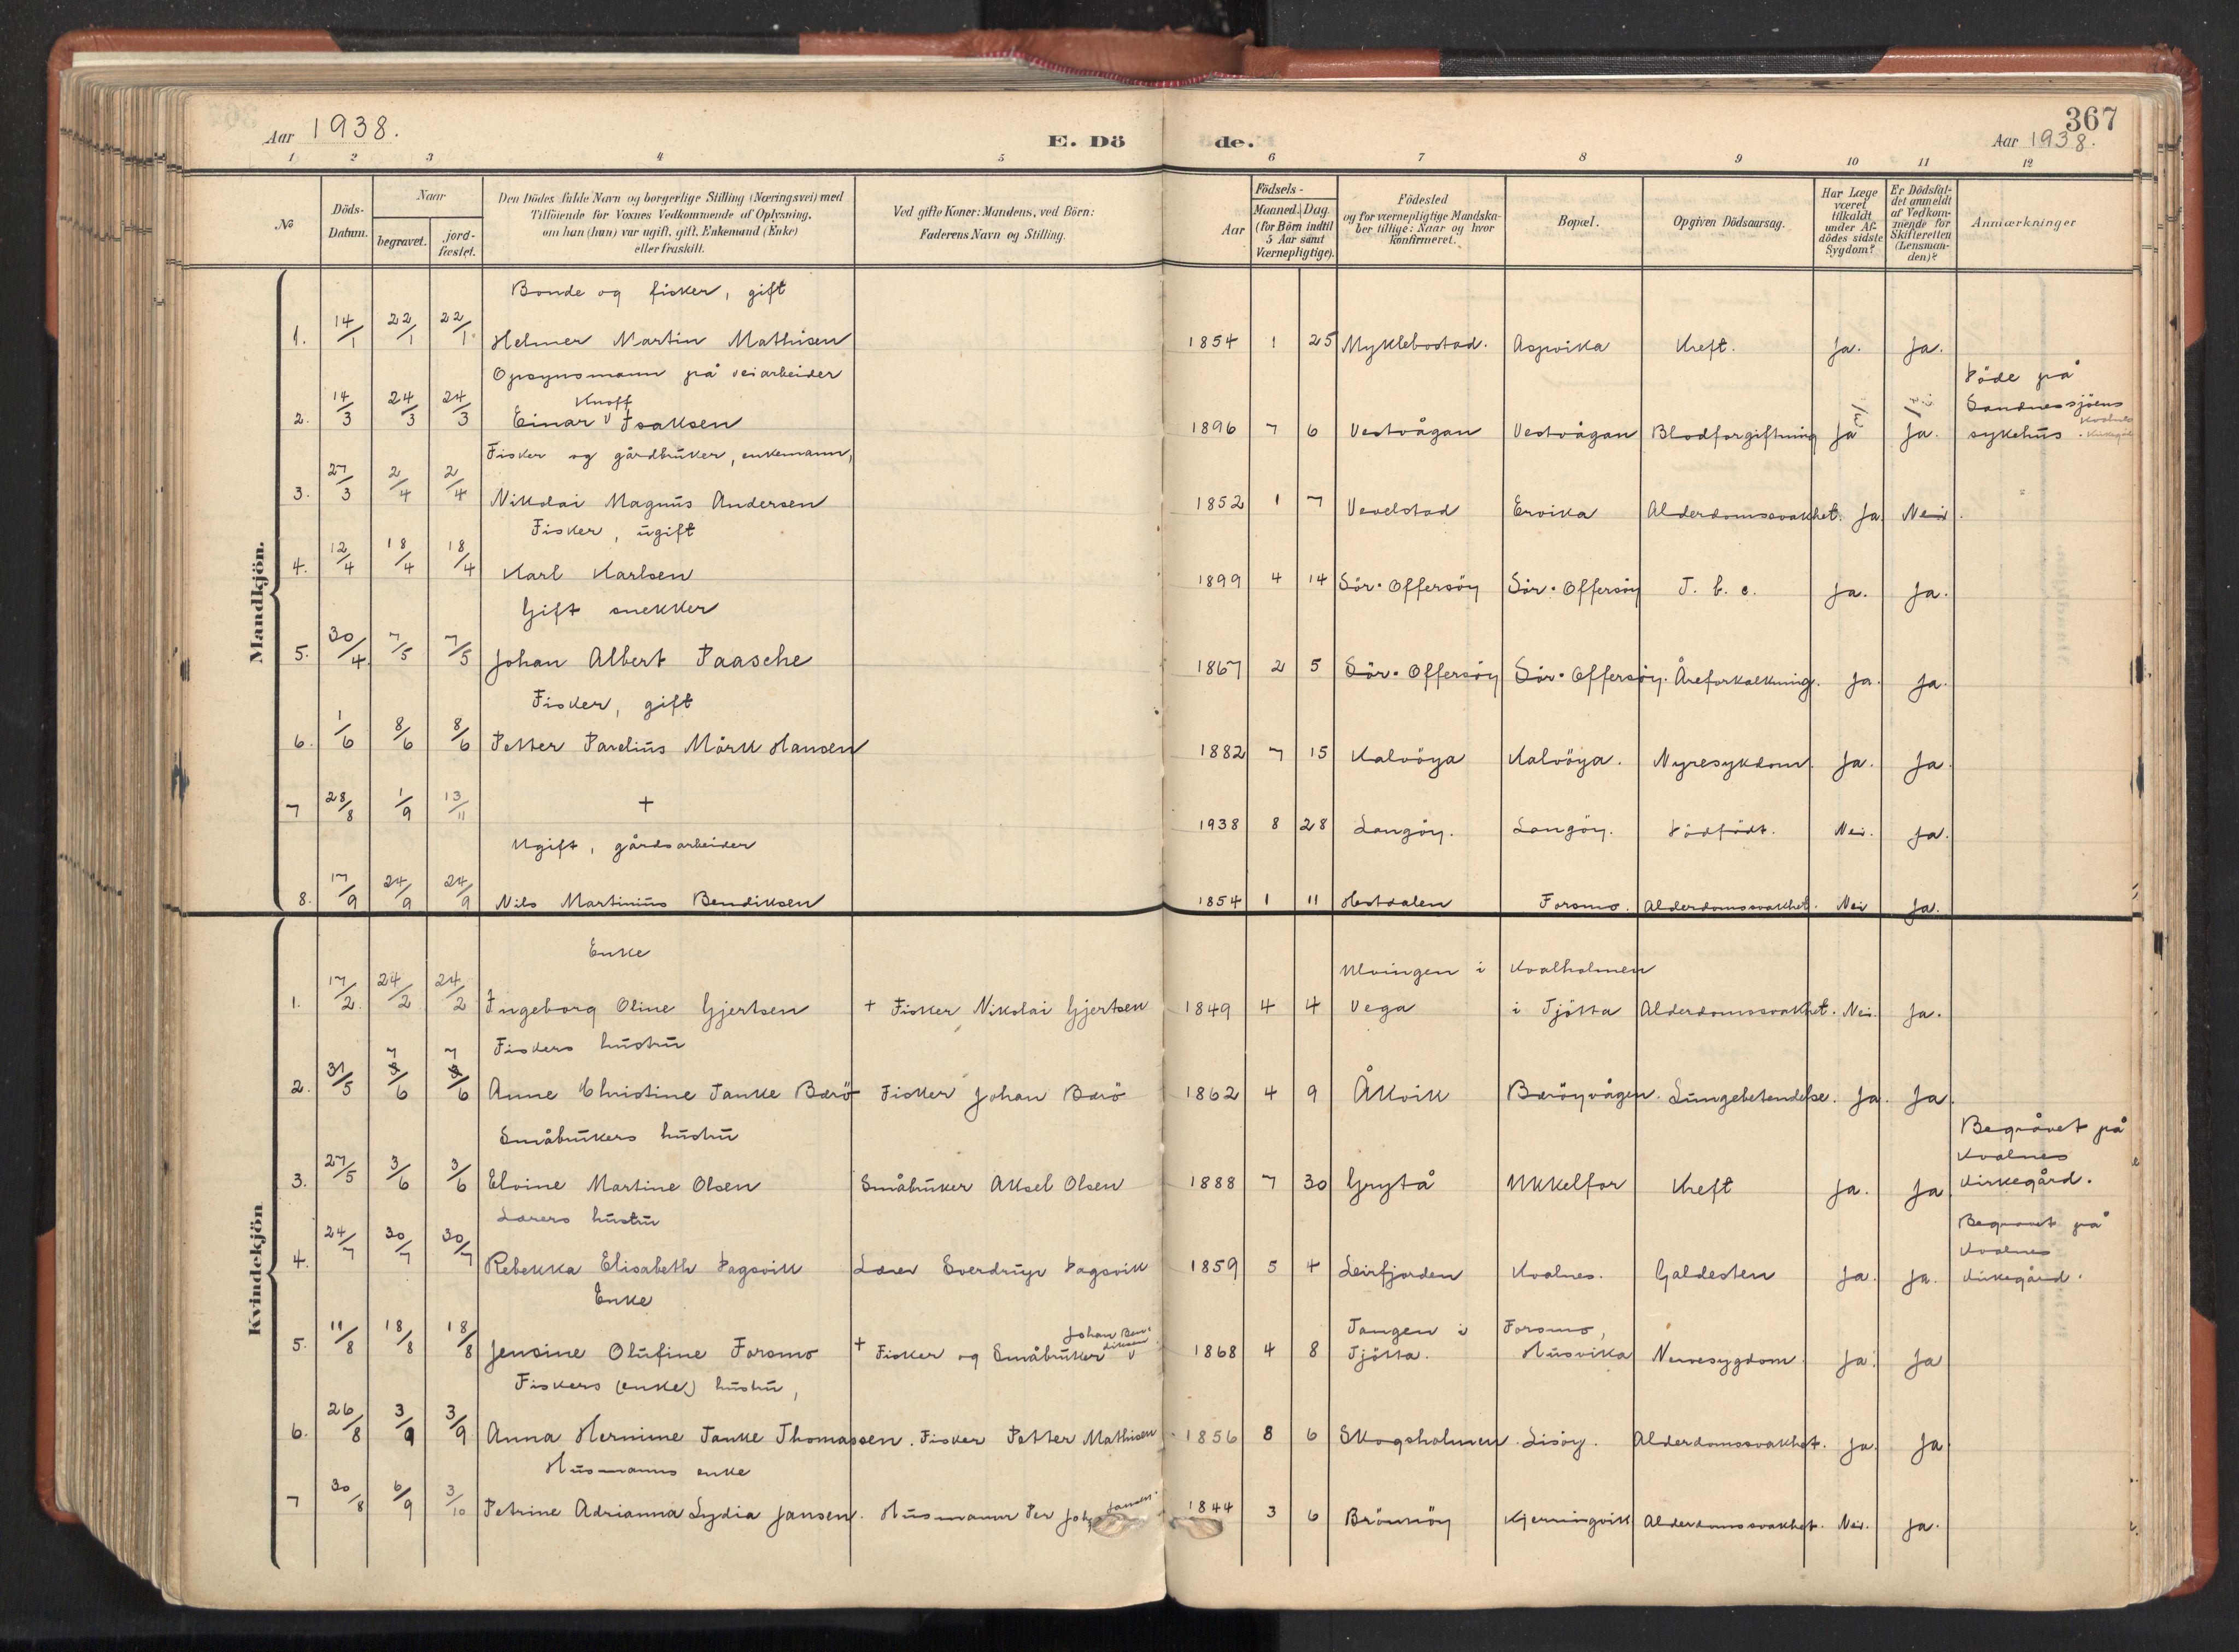 Aar 1938.
E. Dö
de.
367
Aar 1938.
1 2 3 4 5 6 7 8 9 10 11 12
No
Döds-Datum.
Naar
begravet.
jord-fæstet.
Den Dödes fulde Navn og borgerlige Stilling (Næringsvei) med
Tilföiende for Voxnes Vedkommende af Oplysning,
om han (hun) var ugift, gift, Enkemand (Enke)
eller fraskilt.
Ved gifte Koner: Mandens, ved Börn:
Faderens Navn og Stilling.
Födsels-
Aar
Maaned. Dag.
(for Börn indtil
5 Aar samt
Værnepligtige).
Födested
og for værnepligtige Mandska-
ber tillige: Naar og hvor
konfirmeret.
Bopæl.
Opgiven Dödsaarsag.
Har Læge
været
tilkaldt
under Af-
dödes sidste
Sygdom?
Er Dödsfal-
det anmeldt
af Vedkom-
mende for
Skifteretten
(Lensman-
den)?
Anmærkninger
Mandkjön.
Bonde og fisker, gift
1. 14/1 22/1 22/1 Helmer Martin Mathisen 1854 1 25 Myklebostad. Aspvika Kreft. Ja. Ja.
Opsynsmann på veiarbeider
2. 14/3 24/3 24/3 Einar Knoff Isaksen 1896 7 6 Vestvågan Vestvågan Blodforgiftning Ja Ja. Döde på
Sandnessjöens
sykehus.
Fisker og gårdbruker, enkemann,
3. 27/3 2/4 2/4 Nikolai Magnus Andersen 1852 1 7 Vevelstad Ervika Alderdomssvakhet. Ja Nei.
Fisker, ugift
4. 12/4 18/4 18/4 Karl Karlsen 1899 4 14 Sör-Offersöy Sör-Offersöy T. b. c. Ja. Ja.
Gift snekker
5. 30/4. 7/5 7/5 Johan Albert Paasche 1867 2 5 Sör-Offersöy Sör-Offersöy. Åreforkalkning. Ja. Ja.
Fisker, gift
6. 1/6 8/6 8/6 Petter Parelius Mörk Hansen 1882 7 15 Kalvöya Kalvöya. Nyresykdom. Ja. Ja.
7 28/8 1/9 13/11 + 1938 8 28 Langöy. Langöy. Dödfödt. Nei. Ja.
Ugift, gårdsarbeider
8. 17/9 24/9 24/9 Nils Martinius Bendiksen 1854 1 11 Hestdalen Forsmo. Alderdomssvakhet. Nei Ja.
Kvindekjön
Enke
1. 17/2. 24/2 24/2 Ingeborg Oline Gjertsen + Fisker Nikolai Gjertsen 1849 4 4 Ulvingen i Vega Kvalholmen i Tjötta Alderdomssvakhet. Nei. Ja.
Fiskers hustru
2. 31/5 7/6 7/6 Anne Christine Tanke Bærö Fisker Johan Bærö 1862 4 9 Åkvik Bæröyvågen. Lungebetendelse. Ja. Ja.
Småbrukers hustru
3. 27/5 3/6 3/6 Elvine Martine Olsen Småbruker Aksel Olsen 1888 7 30 Grytå Ukkelfor Kreft Ja. Ja Begravet på
Kvalnes
kirkegård.
Lærers hustru
4. 24/7 30/7 30/7 Rebekka Elisabeth Dagsvik Lærer Sverdrup Dagsvik 1859 5 4 Leirfjorden Kvalnes. Galdesten Ja. Ja. Begravet på
Kvalnes
kirkegård.
Enke
5. 11/8 18/8 18/8 Jensine Olufine Forsmo + Fisker og Småbruker Johan Bendiksen 1868 4 8 Tangen i Tjötta. Forsmo, Husvika Nervesygdom. Ja. Ja
Fiskers (enke) hustru,
6. 26/8 3/9 3/9 Anna Hermine Tanke Thomassen. Fisker Petter Mathisen 1856 8 6 Skogsholmen Lisöy. Alderdomssvakhet. Ja. Ja
Husmanns enke
7 30/8 6/9 3/10 Petrine Adrianna Lydia Jansen. Husmann Per Joh Jansen. 1844 3 6 Brönnöy Kjerringvik Alderdomssvakhet. Nei. Ja.